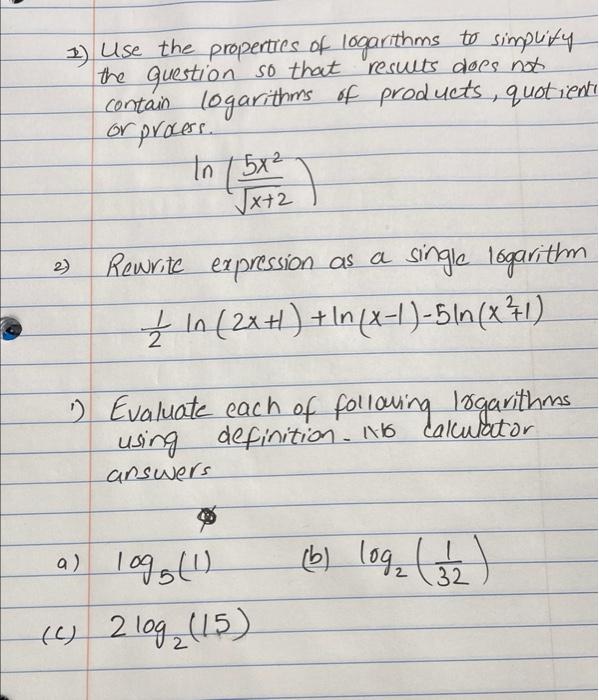 1) Use the properties of logarithms to simplify
the question so that results does not
contain logarithms of products, quotient
or process.
ln (5x²/√x+2)
2) Rewrite expression as a single logarithm
1/2 ln (2x+1) + ln (x-1) - 5 ln (x²+1)
1) Evaluate each of following logarithms
using definition. No calculator
answers
a) log₅(1) (b) log₂ (1/32)
(c) 2 log₂ (15)